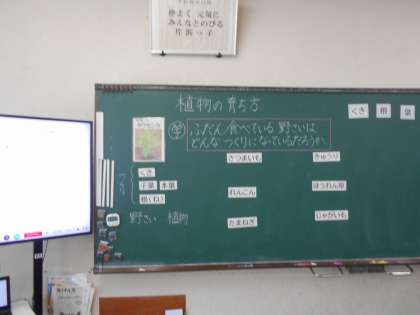 仲よく 元気に
みんなとのびる
片浜っ子
植物の育ち方
くき 根 葉
学 ふだん食べている 野さいは
どんな つくりになっているだろうか
さつまいも きゅうり
くき
子葉 本葉
根(ね)
れんこん ほうれん草
野さい 植物
たまねぎ じゃがいも